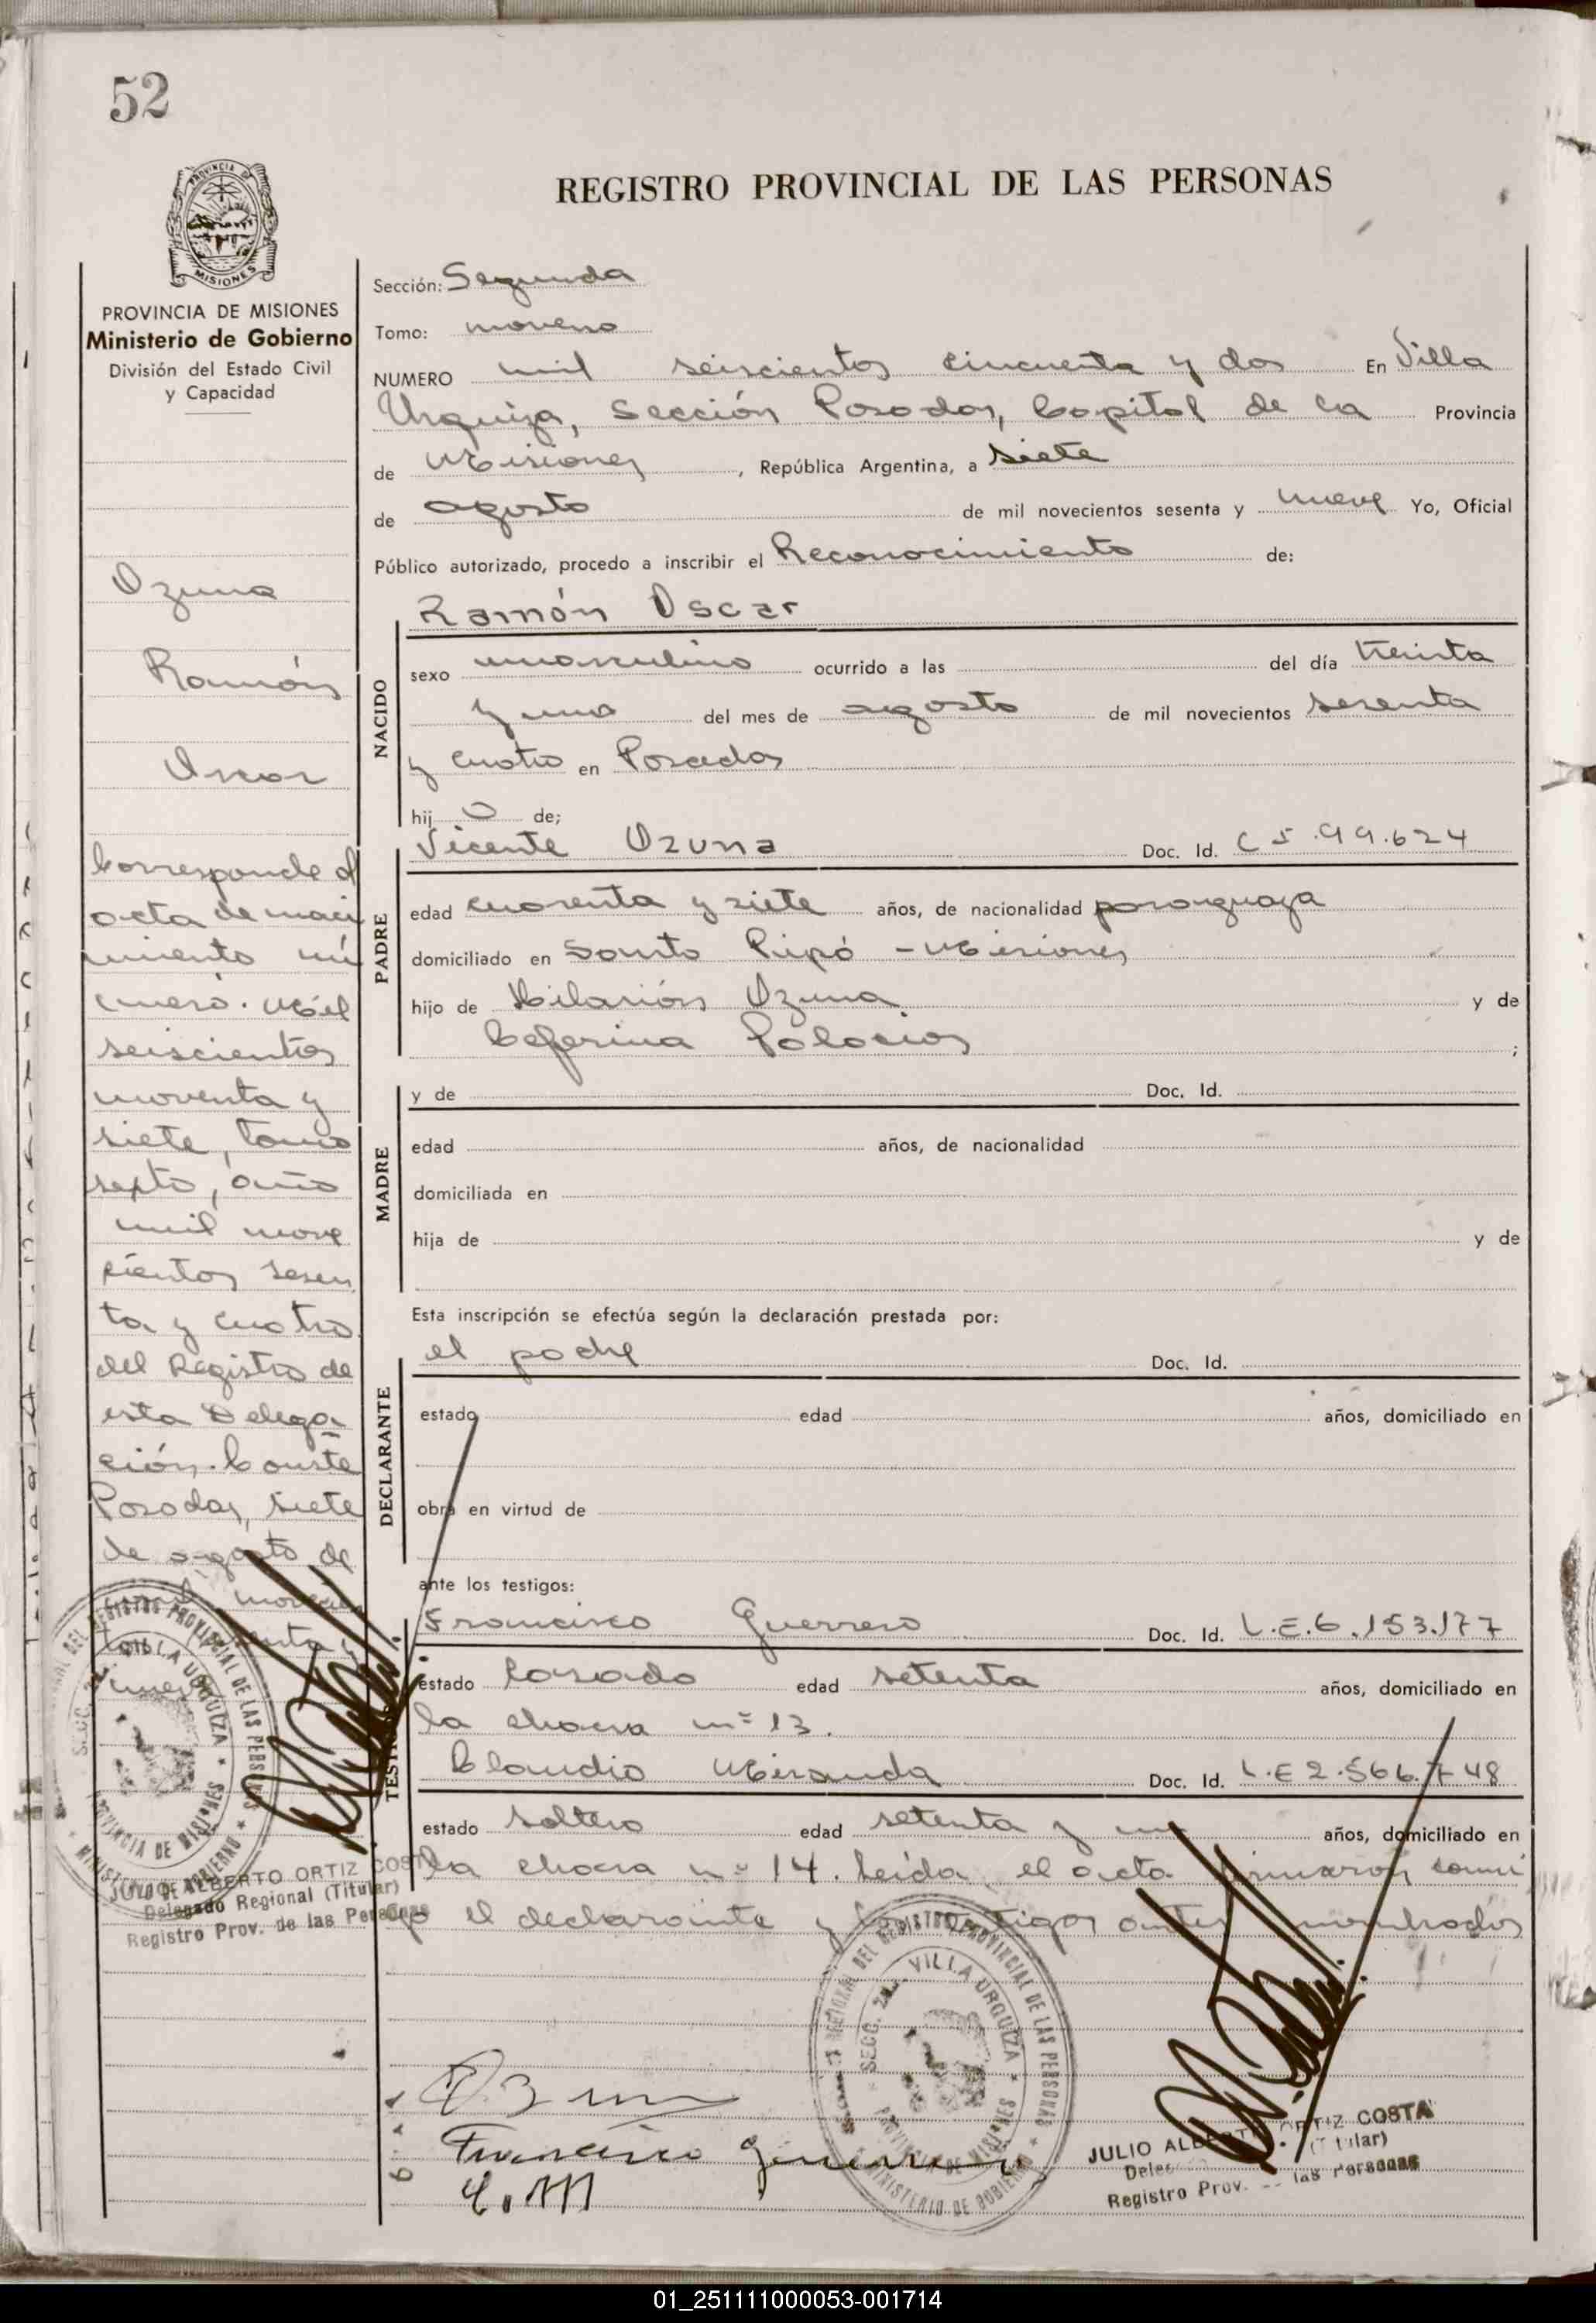 52
PROVINCIA DE
MISIONES
REGISTRO PROVINCIAL DE LAS PERSONAS
PROVINCIA DE MISIONES
Ministerio de Gobierno
División del Estado Civil
y Capacidad
Ozuna
Ramón
Oscar
Corresponde al
acta de naci
miento nú
mero. Mil
seiscientos
noventa y
siete, tomo
sexto, año
mil nove
cientos sesen
ta y cuatro
del Registro de
esta Delega
ción. Conste
Posadas, siete
de agosto de
Sección: Segunda
Tomo: noveno
NUMERO mil seiscientos cincuenta y dos En Villa
Urquiza, Sección Posadas, Capital de la Provincia
de Misiones, República Argentina, a siete
de agosto de mil novecientos sesenta y nueve Yo, Oficial
Público autorizado, procedo a inscribir el Reconocimiento de:
Ramón Oscar
NACIDO
sexo masculino ocurrido a las del día treinta
y uno del mes de agosto de mil novecientos sesenta
y cuatro en Posadas
hij o de;
Vicente Ozuna Doc. Id. C 5.99.624
PADRE
edad cuarenta y siete años, de nacionalidad paraguaya
domiciliado en Santo Pipó - Misiones
hijo de Hilarión Ozuna y de
Ceferina Palacios ;
MADRE
y de Doc. Id.
edad años, de nacionalidad
domiciliada en
hija de y de
Esta inscripción se efectúa según la declaración prestada por:
el padre Doc. Id.
DECLARANTE
estado edad años, domiciliado en
obra en virtud de
ante los testigos:
Francisco Guerrero Doc. Id. L.E.6.153.177
estado Casado edad setenta años, domiciliado en
la chacra nº 13.
Claudio Miranda Doc. Id. L.E 2.566.748
estado soltero edad setenta y años, domiciliado en
la chacra nº 14. Leída el acta firmaron conmi
go el declarante y testigos antes nombrados
JULIO ALBERTO ORTIZ COSTA
Delegado Regional (Titular)
Registro Prov. de las Personas
SECC. 2a. VILLA URQUIZA
PROVINCIA DE MISIONES
MINISTERIO DE GOBIERNO
Francisco Guerrero
C. M
JULIO ALBERTO ORTIZ COSTA
Registro Prov. las Personas
01_251111000053-001714